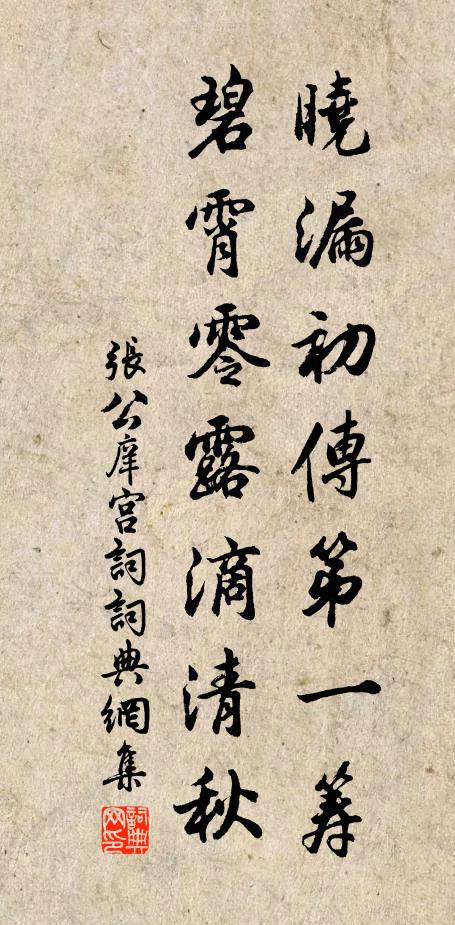 曉漏初傳第一筹
碧霄零露滴清秋
張公庠宮詞詞典網集
詞典网印